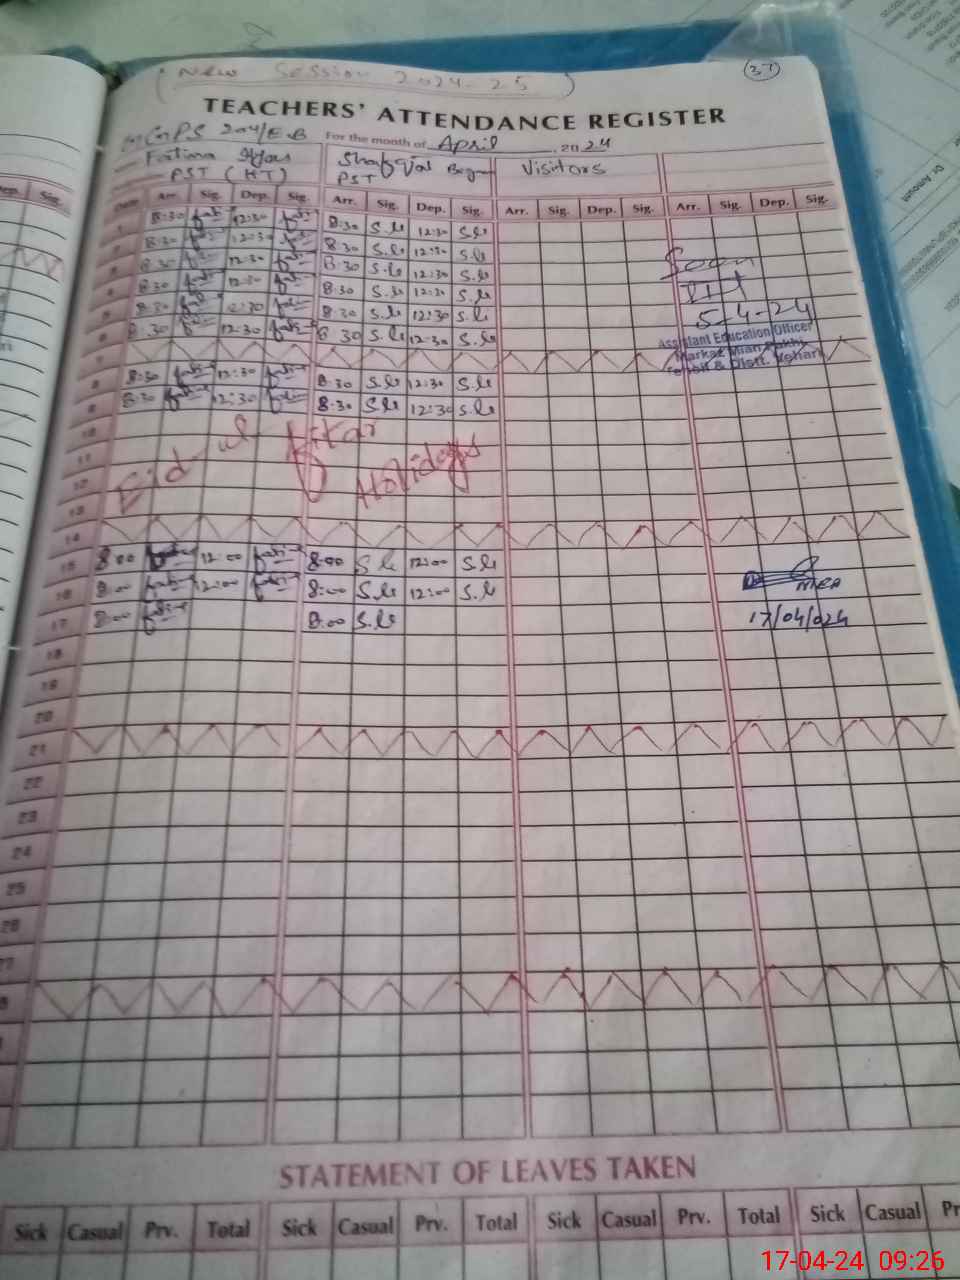 (New Session 2024-25)
37
TEACHERS' ATTENDANCE REGISTER
GGPS 204/E.B For the month of April, 2024
Fatima Shafqat Begum Visitors
PST (HT) PST
Date Arr. Sig. Dep. Sig. Arr. Sig. Dep. Sig. Arr. Sig. Dep. Sig. Arr. Sig. Dep. Sig.
1 8:30 12:30 8:30 S.b 12:30 S.b
2 8:30 12:30 8:30 S.b 12:30 S.b
3 8:30 12:30 8:30 S.b 12:30 S.b
4 8:30 12:30 8:30 S.b 12:30 S.b
5 8:30 12:30 8:30 S.b 12:30 S.b
6 8:30 12:30 8:30 S.b 12:30 S.b
Seen
5-4-24
Assistant Education Officer
Markaz Mian Pakhi
Tehsil & Distt. Vehari
7
8 8:30 12:30 8:30 S.b 12:30 S.b
9 8:30 12:30 8:30 S.b 12:30 S.b
10
11
12
13
Eid-ul-fitar Holidays
14
15 8:00 12:00 8:00 S.b 12:00 S.b
16 8:00 12:00 8:00 S.b 12:00 S.b
MEA
17 8:00 8:00 S.b 17/04/024
18
19
20
21
22
23
24
25
26
27
STATEMENT OF LEAVES TAKEN
Sick Casual Prv. Total Sick Casual Prv. Total Sick Casual Prv. Total Sick Casual
17-04-24 09:26